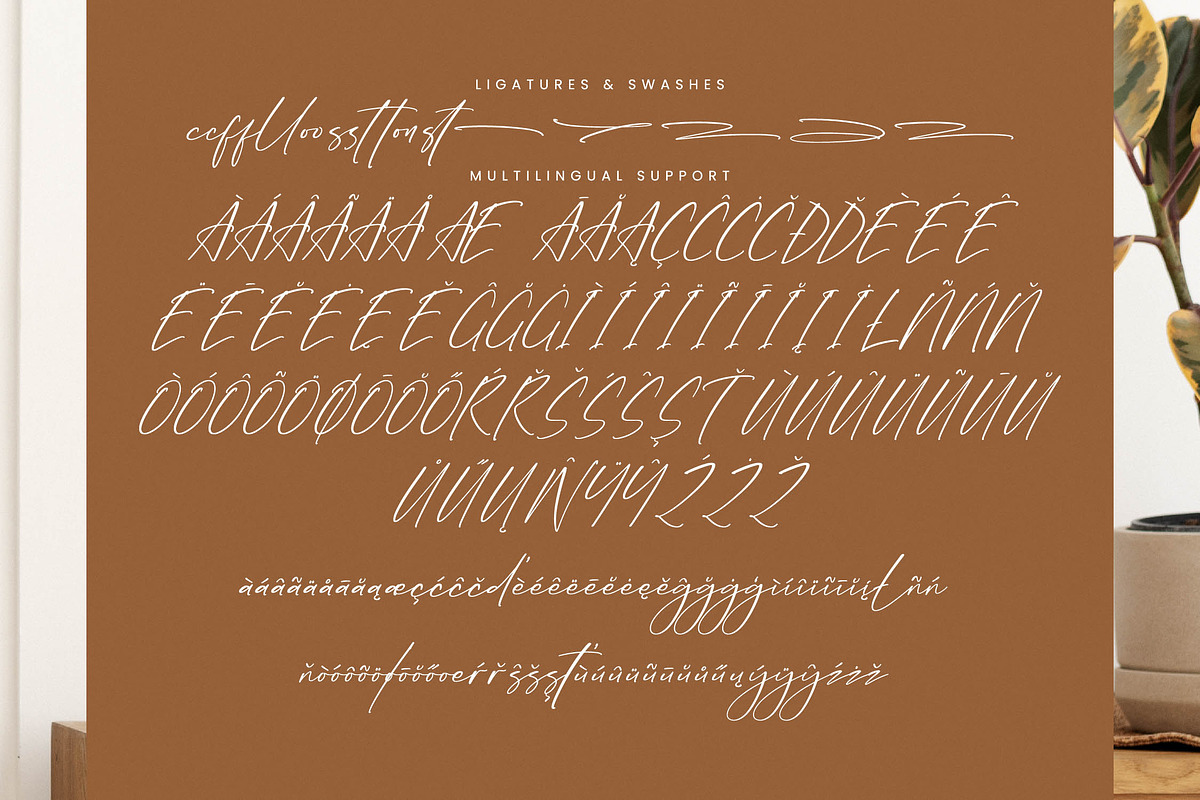 LIGATURES & SWASHES
ccfflloossttonst
MULTILINGUAL SUPPORT
ÀÁÂÃÄÅÆ ĀĂĄÇĆĈČĐĎÈÉÊ
ËĒĔĖĘĚĜĞĠÌÍÎÏĨĪĬĮİŁÑŃŇ
ÒÓÔÕÖØŌŎŐŔŘŠŚŜŞŤÙÚÛÜŨŪŬ
ŮŰŲŴŸŶŹŻŽ
àáâãäåāăąæçćĉčďèéêëēĕėęěĝğġģìíîïĩīĭįłñń
ňòóôõöøōŏőœŕřŝšşťùúûüũūŭůűųýÿŷźżž